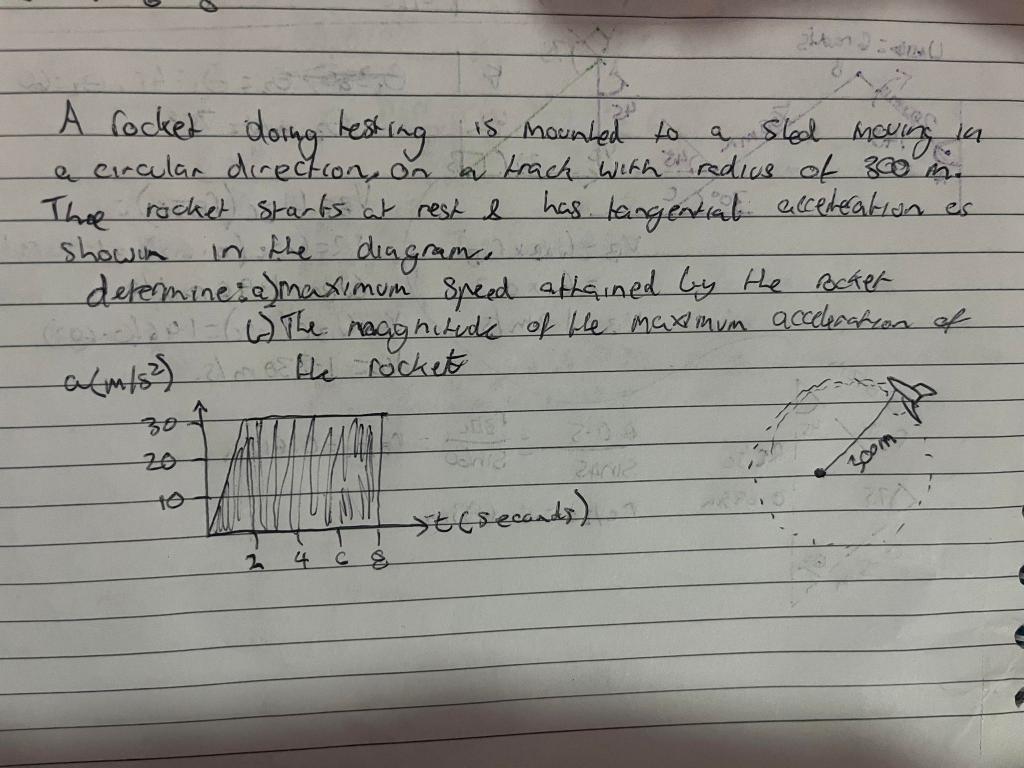 A rocket doing testing is mounted to a sled moving in
a circular direction, on a track with radius of 300 m.
The rocket starts at rest & has tangential acceleration as
shown in the diagram.
determine: a) maximum speed attained by the rocket
The magnitude of the maximum acceleration of
the rocket
a(m/s²)
30
20
10
2 4 6 8
t(seconds)
300m